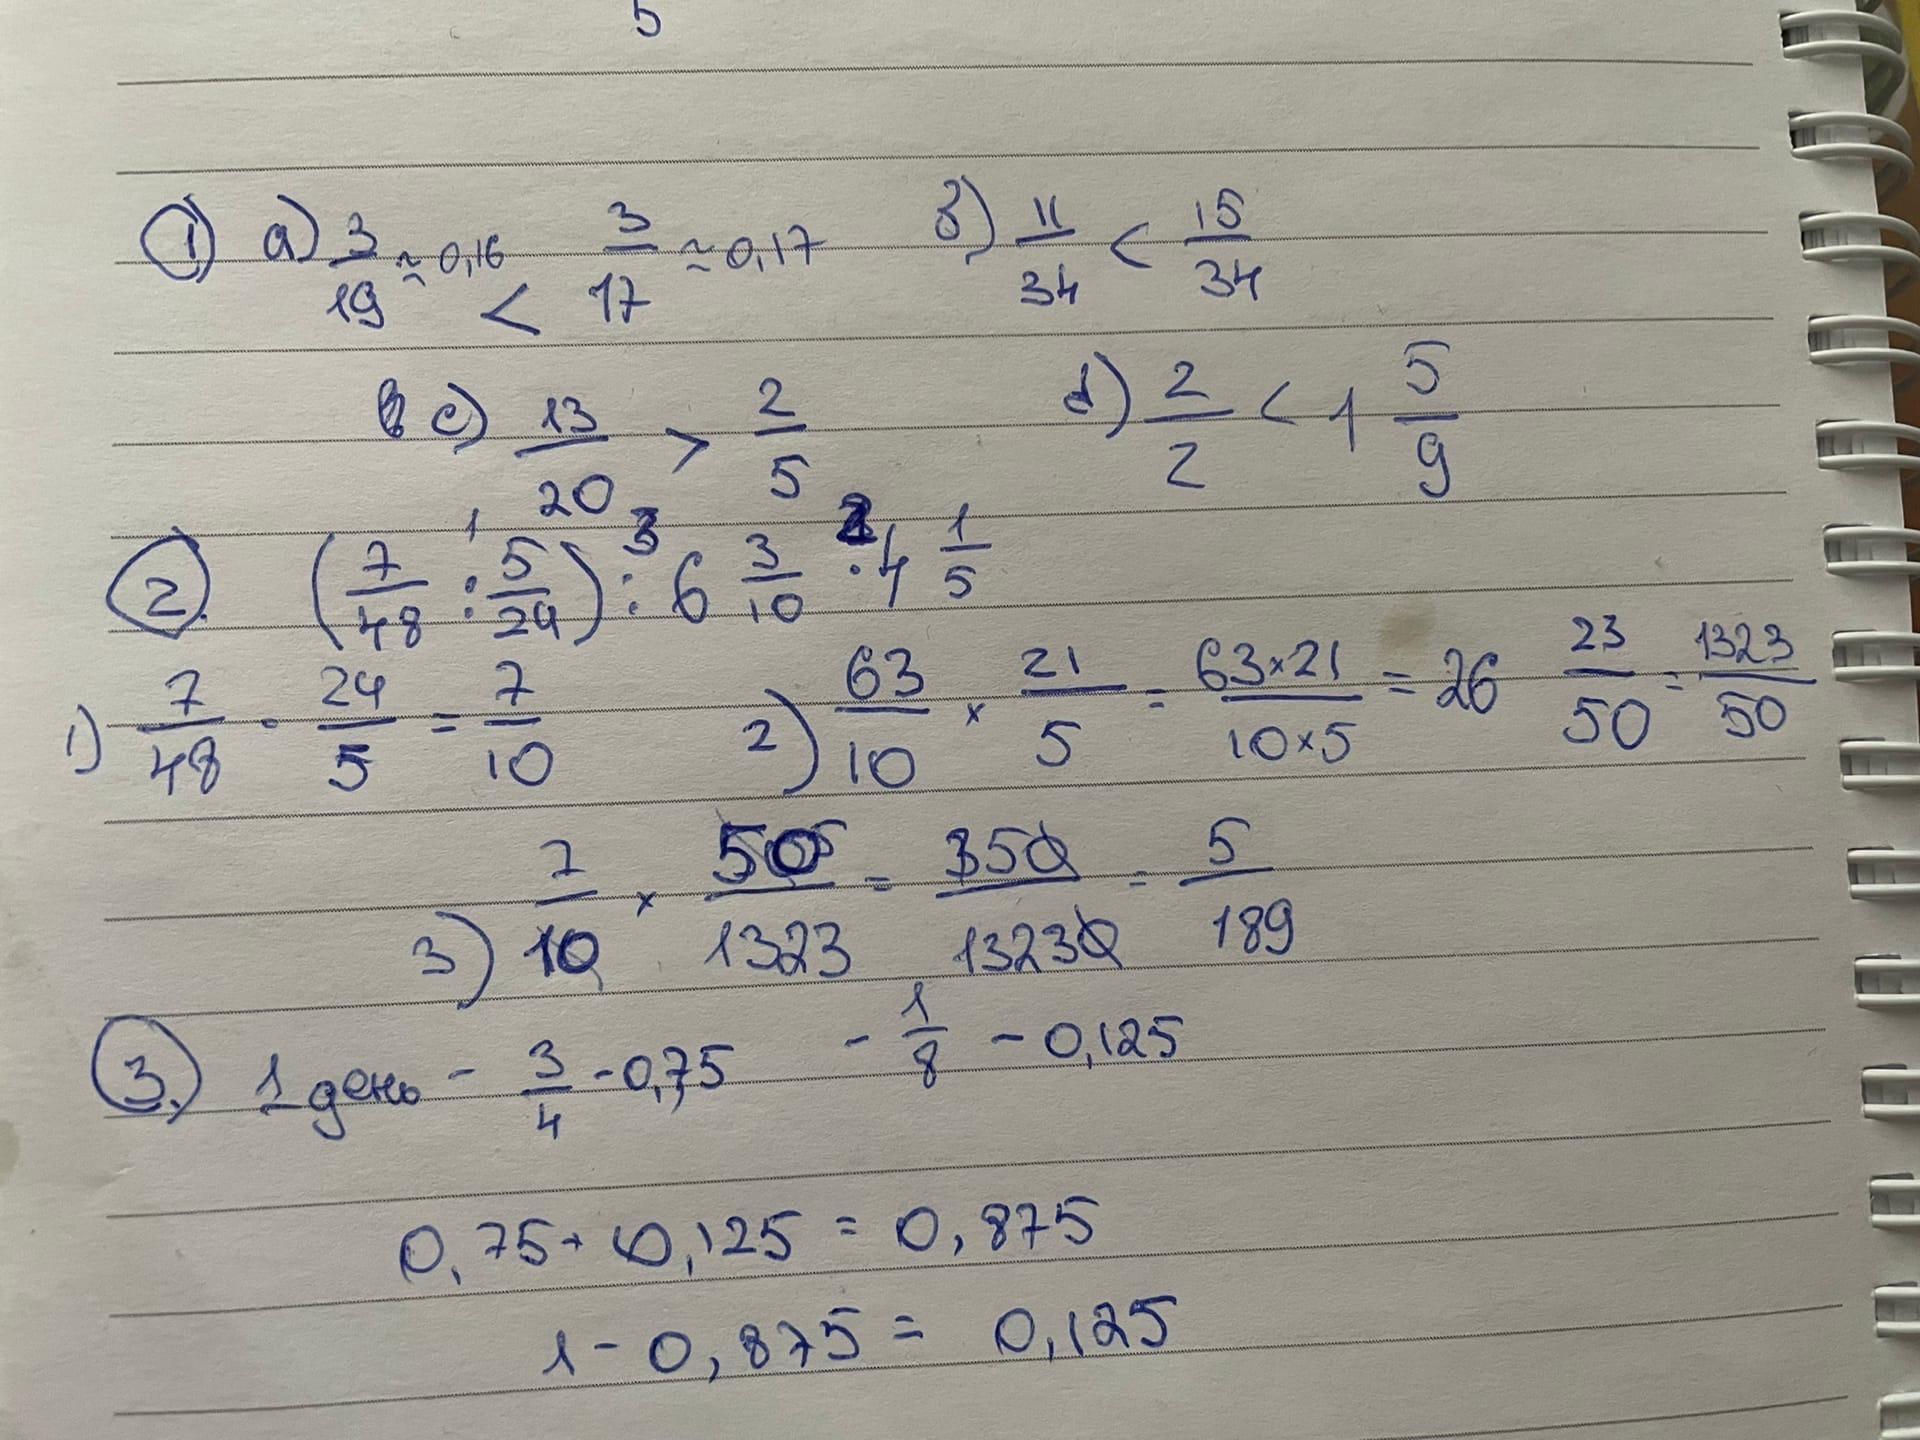 5
1) а) 3/19 ≈ 0,16 < 3/17 ≈ 0,17 б) 11/34 < 15/34
c) 13/20 > 2/5 d) 2/2 < 1 5/9
2. (7/48 :¹ 5/24) :³ 6 3/10 ·² 4 1/5
1) 7/48 · 24/5 = 7/10 2) 63/10 × 21/5 = 63×21/10×5 = 26 23/50 = 1323/50
3) 7/10 × 50/1323 = 350/13230 = 5/189
3. 1 день - 3/4 - 0,75 - 1/8 - 0,125
0,75 + 0,125 = 0,875
1 - 0,875 = 0,125